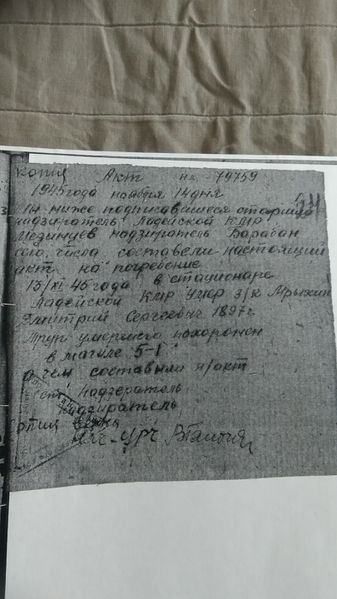 копия Акт на - 79759
1945 года ноября 14 дня
Мы ниже подписавшиеся старший
надзиратель Мадейской КМР
Мединцев надзиратель Барабан
сего числа составели настоящий
акт на погребение
13/XI 45 года в стационаре
Мадейской КМР умер з/к Мрыхин
Дмитрий Сергеевич 1897г.
Труп умершего похоронен
в магиле 5-1
о чем составили п/акт
надзератель
надзиратель